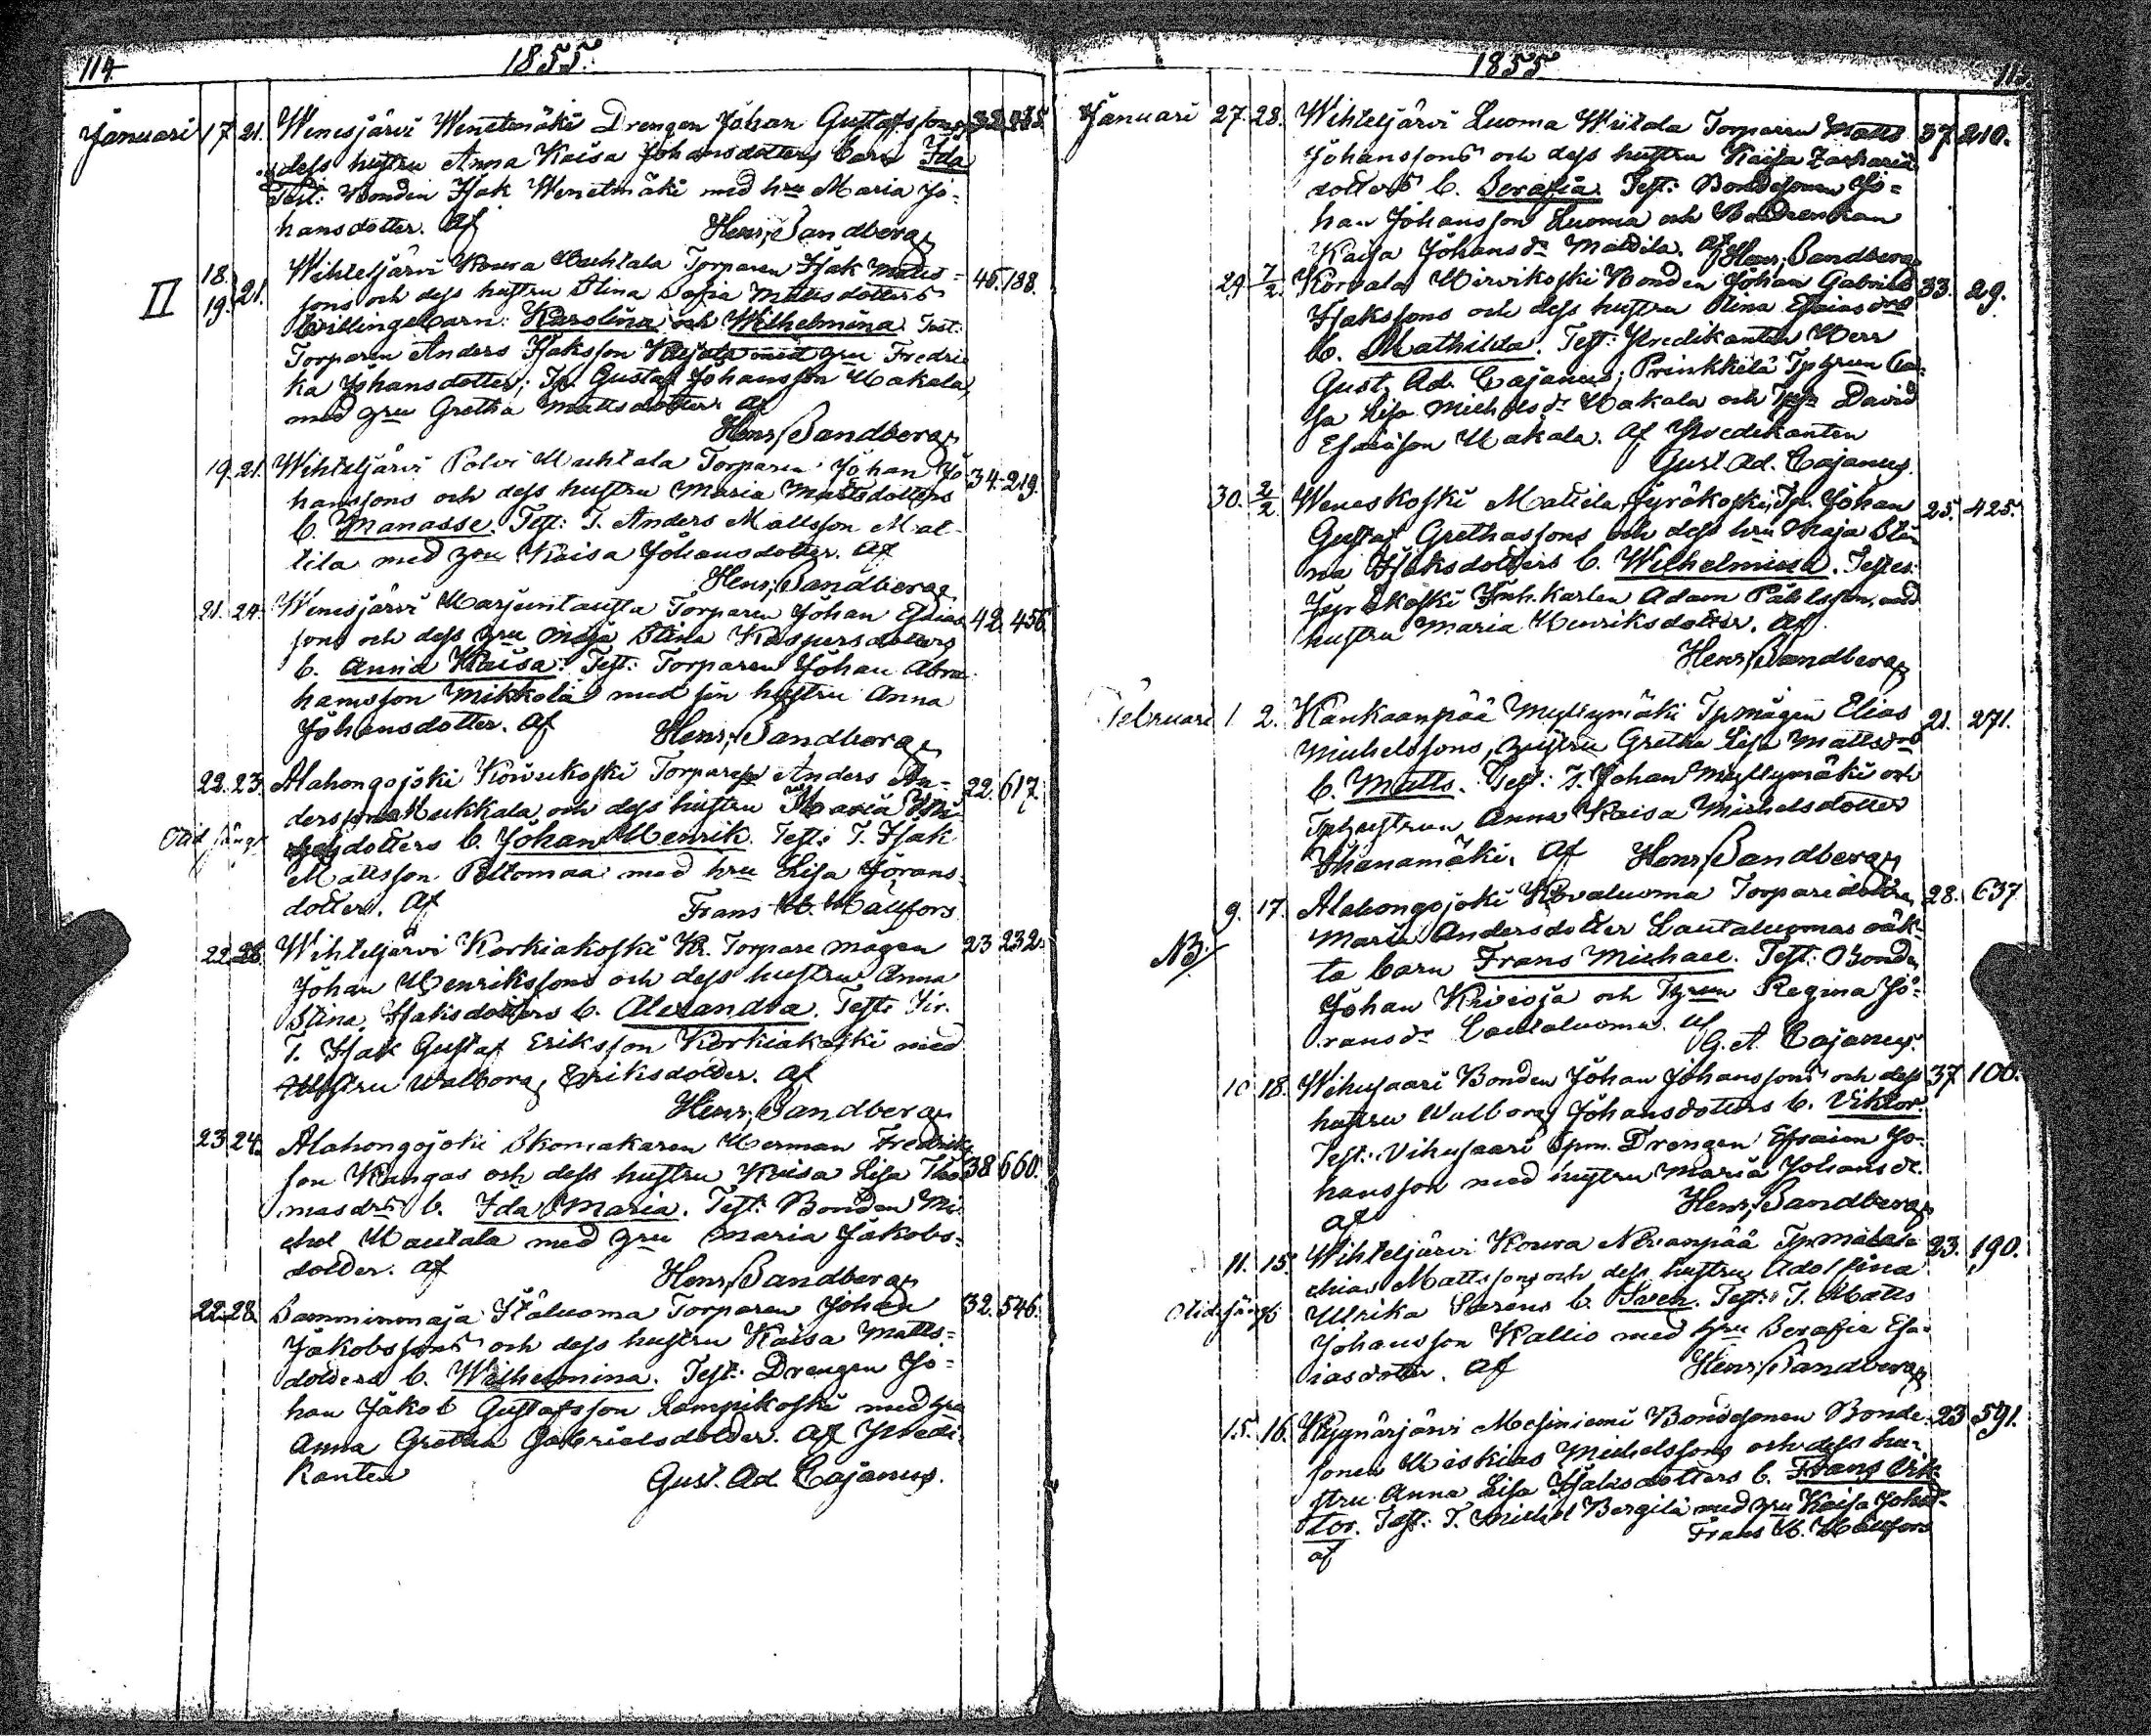 114
1855.
Januari 17 21. Wenesjärvi Wenetmäki Drengen Johan Gustafssons 32. 435.
o. dess hustru Anna Kaisa Johansdotters barn Ida
Test: Bonden Isak Wenetmäki med hru Maria Jo-
hansdotter. Af Henr. Sandberg
II 18. 19. 21. Wihteljärvi Koura Uuhtala Torparen Isak Matts- 45. 188.
sons och dess hustru Stina Sofia Mattsdotters
tvillingebarn: Karolina och Wilhelmina. Test:
Torparen Anders Isaksson med hru Fredri
ka Johansdotter; Tp. Gustaf Johansson Hakala,
med hru Gretha Mattsdotter. Af
Henr. Sandberg
19. 21. Wihteljärvi Polvi Uuhtala Torparen Johan Jo- 34. 219.
hanssons och dess hustru Maria Mattsdotters
b. Manasse. Test: T. Anders Mattsson Mat-
tila med hru Kaisa Johansdotter. Af
Henr. Sandberg
21. 24. Wenesjärvi Marjuntausta Torparen Johan Esaias 42. 456.
sons och dess hru Maja Stina Kaspersdotters
b. Anna Kaisa. Test: Torparen Johan Abra-
hamsson Mikkola med sin hustru Anna
Johansdotter. Af Henr. Sandberg
22. 23. Alahongojoki Kouvukoski Torparen Anders An- 22. 617.
derssons Kukkala och dess hustru Maria
dotters b. Johan Henrik. Test: T. Isak
Mattsson Peltomaa med hru Lisa Jörans-
dotter. Af Frans H. Hallfors
22. 28. Wihteljärvi Korkiakoski Kr. Torpare mågen 23 232.
Johan Henrikssons och dess hustru Anna
Stina Isaksdotters b. Alexandra. Test:
T. Isak Gustaf Eriksson Korkiakoski med
hustru Walborg Eriksdotter. Af
Henr. Sandberg
23. 24. Alahongojoki Skomakaren Herman Fredriks
son Kangas och dess hustru Kaisa Lisa Tho- 38 660.
masdrs b. Ida Maria. Test: Bonden Mi-
chel Hautala med hru Maria Jakobs-
dotter. Af Henr. Sandberg
22. 28. Samminmaja Isoluoma Torparen Johan 32. 546.
Jakobssons och dess hustru Kaisa Matts-
dotters b. Wilhelmina. Test: Drengen Jo-
han Jakob Gustafsson Lampikoski med hru
Anna Gretha Gabrielsdotter. Af Predi-
kanten Gust. Ad. Cajanus.
1855
Januari 27. 28. Wihteljärvi Luoma Wiitala Torparen Matts 37. 210.
Johanssons och dess hustru Kaisa Zacharia
dotters b. Serafia. Test: Bondesonen Jo-
han Johansson Luoma och Bondeenkan
Kaisa Johansdr Mattila. Af Henr. Sandberg
29. 7/2. Korvala Hirvikoski Bonden Johan Gabriel 33. 29.
Isakssons och dess hustru Stina Esaiasdrs
b. Mathilda. Test: Predikanten Herr
Gust. Ad. Cajanus; Prinkkilä Tphrun Ca-
sa Lisa Michelsdr Hakala och David
Esaiasson Hakala. Af Predikanten
Gust. Ad. Cajanus.
30. 2/2 Weneskoski Mattila Jyräkoski, Tp. Johan 25. 425.
Gustaf Grethassons och dess hru Maja Sti-
na Isaksdotters b. Wilhelmina. Testes:
Jyräkoski Inh.karlen Adam Påhlsson, med
hustru Maria Henriksdotter. Af
Henr. Sandberg
Februari 1. 2. Kankaanpää Myllymäki Tpmågen Elias 21. 271.
Michelssons, hustru Gretha Lisa Mattsdrs
b. Matts. Test: T. Johan Myllymäki och
Tphustrun Anna Kaisa Michelsdotter
Ihanamäki. Af Henr. Sandberg
NB. 9. 17. Alahongojoki Kovaluoma Torparedottern 28. 637
Maria Andersdotter Lautaluomas oäk-
ta barn Frans Michael. Test: Bonden
Johan Krivioja och Tphrun Regina Jö-
ransdr Lautaluoma. af
G. A. Cajanus.
10 18. Wihusaari Bonden Johan Johanssons och dess 37 100.
hustru Walborg Johansdotters b. Viktor.
Test: Vihusaari Tpm. Drengen Efraim Jo-
hansson med hustru Maria Johansdr.
af Henr. Sandberg
11. 15. Wihteljärvi Koura Nevanpää Tpm 23. 190.
Mattssons och dess hustru Adolfina
Ullrika Saréns b. Sven. Test: T. Matts
Johansson Kallio med hru Serafia Esa-
iasdotter. Af Henr. Sandberg
15. 16. Kyynärjärvi Mesiniemi Bondesonen Bonde- 23 591.
sonen Hiskias Michelssons och dess hu-
stru Anna Lisa Isaksdotters b. Frans Vik-
tor. Test: T. Michel Bergilä med hru Kaisa Johsdr.
af Frans H. Hallfors